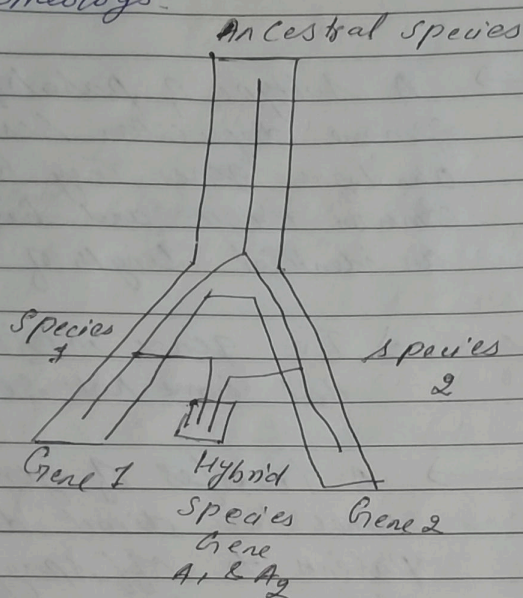 Ancestral Species
Species
1
Species
2
Gene 1
Hybrid
Species
Gene
A1 & A2
Gene 2